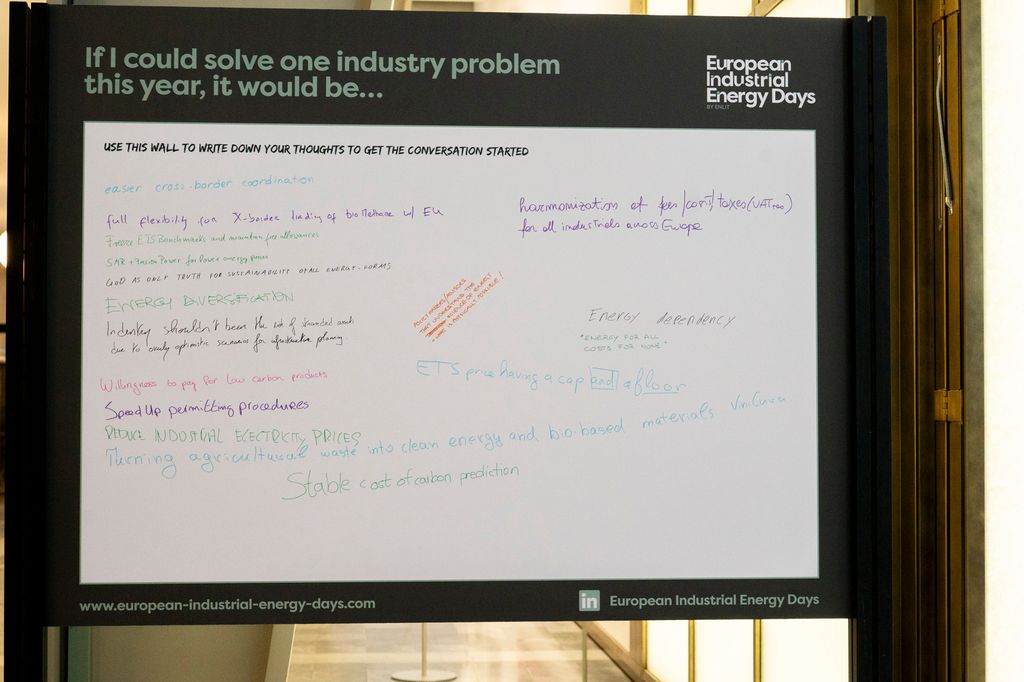 If I could solve one industry problem
this year, it would be...
European
Industrial
Energy Days
BY ENLIT
USE THIS WALL TO WRITE DOWN YOUR THOUGHTS TO GET THE CONVERSATION STARTED
easier cross-border coordination
full flexibility for X-border trading of bioMethane w/ EU
Freeze ETS Benchmarks and maintain free allowances
SMR + Fusion Power for lower energy prices
GOD AS ONLY TRUTH FOR SUSTAINABILITY OF ALL ENERGY-FORMS
ENERGY DIVERSIFICATION
Industry shouldn't bear the risk of stranded assets
due to overly optimistic scenarios for infrastructure planning.
Willingness to pay for low carbon products
Speed Up permitting procedures
REDUCE INDUSTRIAL ELECTRICITY PRICES
Turning agricultural waste into clean energy and bio-based materials
Stable cost of carbon prediction
harmonization of fees/costs/taxes (VAT
for all industrials across Europe
POLICY MAKERS/ADVISORS
THAT UNDERSTAND THE
SCIENCE OF ENERGY
+ WHAT IS PHYSICALLY POSSIBLE!
Energy dependency
"ENERGY FOR ALL
COSTS FOR NONE"
ETS price having a cap and a floor
www.european-industrial-energy-days.com
in European Industrial Energy Days